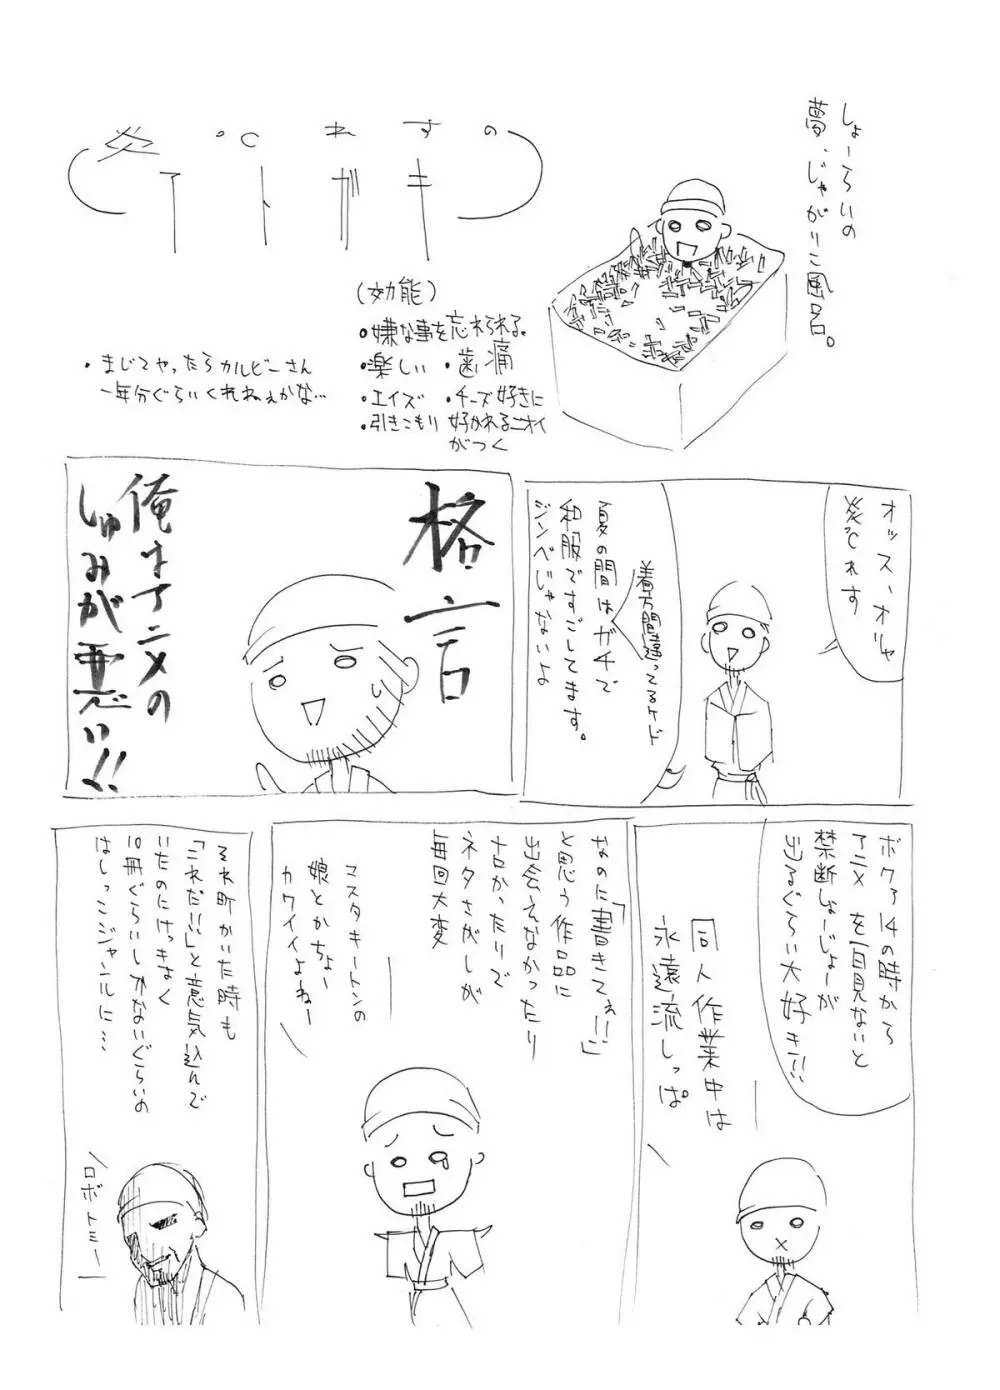 しょーらいの
夢、じゃがりこ風呂。
炎℃れすの
アトガキ
(効能)
・嫌な事を忘れられる。
・楽しい ・歯痛
・エイズ ・チーズ好きに
・引きこもり 好かれるニオイ
がつく
・まじでやったらカルビーさん
一年分ぐらいくれねぇかな…
オッス、オリャ
炎℃れす
夏の間はガチで
和服ですごしてます。
ジンベじゃないよ
着方間違ってるケド
格言
俺はアニメの
しゅみが悪い!!
ボクァ14の時から
アニメを一百見ないと
禁断しょーじょーが
出るぐらい大好き!!!
同人作業中は
永遠流しっぱ
なのに「書きてぇ!!」
と思う作品に
出会えなかったり
ナロかったりで
ネタさがしが
毎回大変
マスタキートンの
娘とかちょー
カワイイよねー
それ町かいた時も
「これだ!!」と意気込んで
いたのにけっきょく
10冊ぐらいしかないぐらいの
はしっこジャンルに…
\ロボトミー/